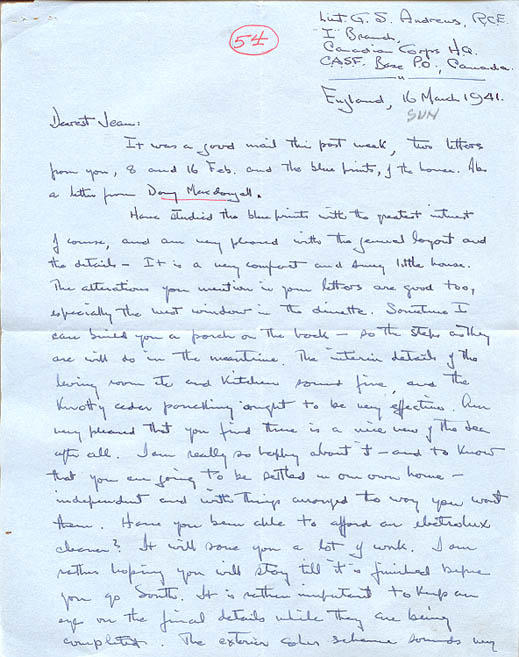 54
Lieut. G. S. Andrews, R.C.E.
"I" Branch,
Canadian Corps H.Q.
C.A.S.F. Base P.O., Canada.
England, 16 March 1941.
SUN
Dearest Jean:
It was a good mail this past week, two letters
from you, 8 and 16 Feb. and the blue prints, of the house. Also
a letter from Doug Macdougall.
Have studied the blue prints with the greatest interest
of course, and am very pleased with the general layout and
the details – It is a very compact and snug little house.
The alterations you mention in your letters are good too,
especially the west window in the dinette. Sometime I
can build you a porch on the back – so the steps as they
are will do in the meantime. The interior details of the
living room etc and kitchen sound fine, and the
Knotty cedar panelling ought to be very effective. Am
very pleased that you find there is a nice view of the sea
after all. I am really so happy about it – and to know
that you are going to be settled in our own home –
independent and with things arranged the way you want
them. Have you been able to afford an electrolux
cleaner? It will save you a lot of work. I am
rather hoping you will stay till it is finished before
you go South. It is rather important to keep an
eye on the final details while they are being
completed. The exterior color scheme sounds very